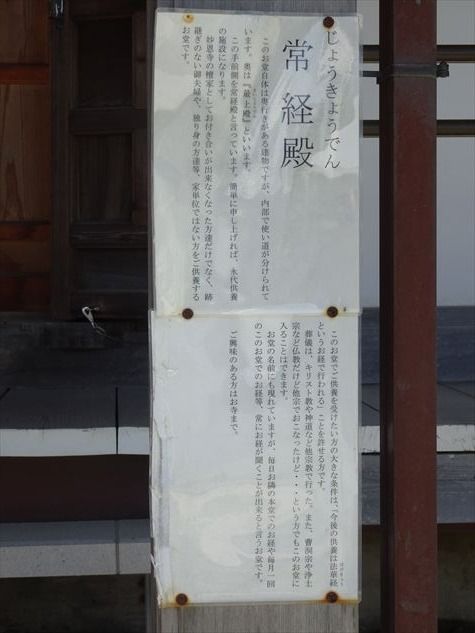 じょうきょうでん
常経殿
このお堂自体は奥行きがある建物ですが、内部で使い道が分けられて
います。奥は『最上殿』といいます。
この手前側を常経殿と言っています。簡単に申し上げれば、永代供養
の施設になります。
妙恩寺の檀家としてお付き合いが出来なくなった方達だけでなく、跡
継ぎのない御夫婦や、独り身の方達等、家単位ではない方をご供養する
お堂です。
このお堂でご供養を受けたい方の大きな条件は、「今後の供養は法華経
というお経で行われる」ことを許せる方です。
葬儀は、キリスト教や神道など他宗教で行った。また、曹洞宗や浄土
宗など仏教だけど他宗でおこなったけど・・・という方でもこのお堂に
入ることはできます。
お堂の名前にも現れていますが、毎日お隣の本堂でのお経や毎月一回
のこのお堂でのお経等、常にお経が聞くことが出来ると言うお堂です。
ご興味のある方はお寺まで。